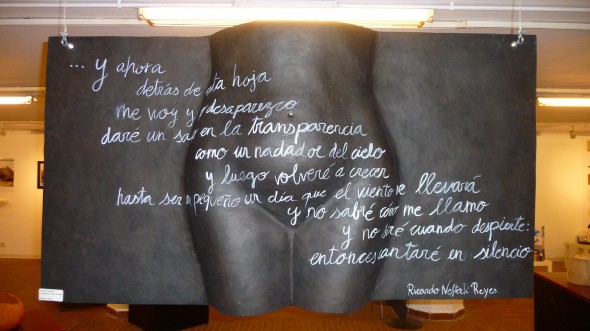 ... y ahora
detrás de esta hoja
me voy y desaparezco
daré un salto en la transparencia
como un nadador del cielo
y luego volveré a crecer
hasta ser tan pequeño un día que el viento me llevará
y no sabré cómo me llamo
y no seré cuando despierte:
entonces cantaré en silencio
Ricardo Neftalí Reyes